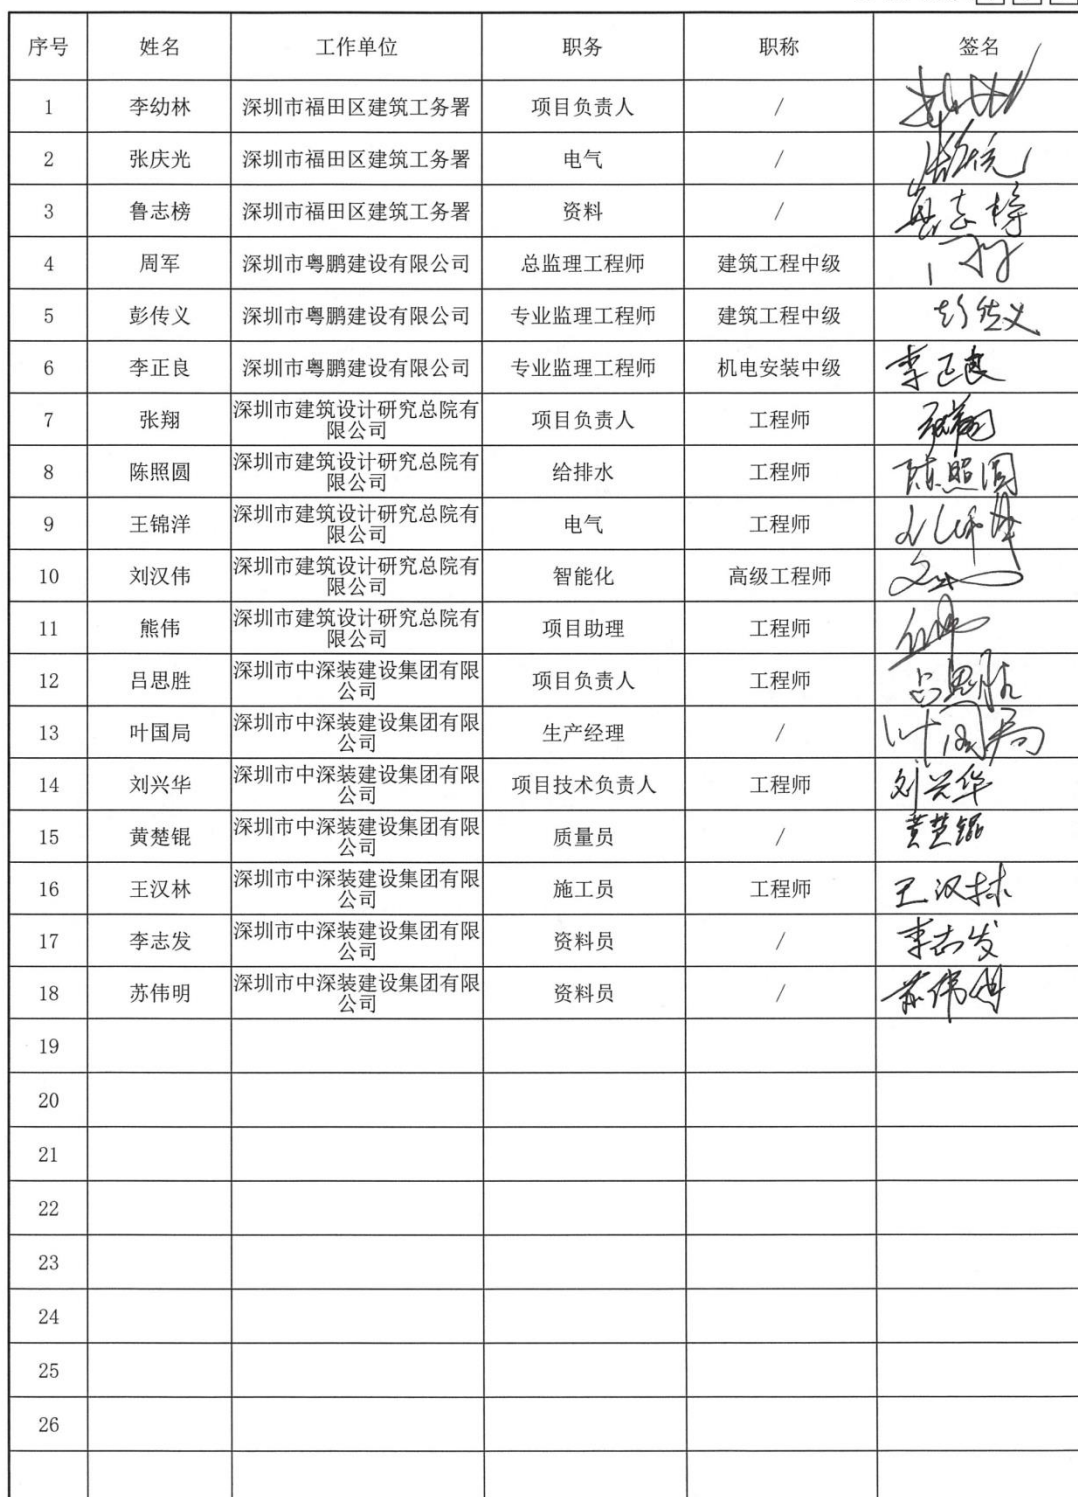 序号 姓名 工作单位 职务 职称 签名
1 李幼林 深圳市福田区建筑工务署 项目负责人 /
2 张庆光 深圳市福田区建筑工务署 电气 /
3 鲁志榜 深圳市福田区建筑工务署 资料 /
4 周军 深圳市粤鹏建设有限公司 总监理工程师 建筑工程中级
5 彭传义 深圳市粤鹏建设有限公司 专业监理工程师 建筑工程中级 彭传义
6 李正良 深圳市粤鹏建设有限公司 专业监理工程师 机电安装中级 李正良
7 张翔 深圳市建筑设计研究总院有
限公司 项目负责人 工程师 张翔
8 陈照圆 深圳市建筑设计研究总院有
限公司 给排水 工程师 陈照圆
9 王锦洋 深圳市建筑设计研究总院有
限公司 电气 工程师
10 刘汉伟 深圳市建筑设计研究总院有
限公司 智能化 高级工程师
11 熊伟 深圳市建筑设计研究总院有
限公司 项目助理 工程师
12 吕思胜 深圳市中深装建设集团有限
公司 项目负责人 工程师 吕思胜
13 叶国局 深圳市中深装建设集团有限
公司 生产经理 / 叶国局
14 刘兴华 深圳市中深装建设集团有限
公司 项目技术负责人 工程师 刘兴华
15 黄楚锟 深圳市中深装建设集团有限
公司 质量员 / 黄楚锟
16 王汉林 深圳市中深装建设集团有限
公司 施工员 工程师 王汉林
17 李志发 深圳市中深装建设集团有限
公司 资料员 / 李志发
18 苏伟明 深圳市中深装建设集团有限
公司 资料员 / 苏伟明
19
20
21
22
23
24
25
26